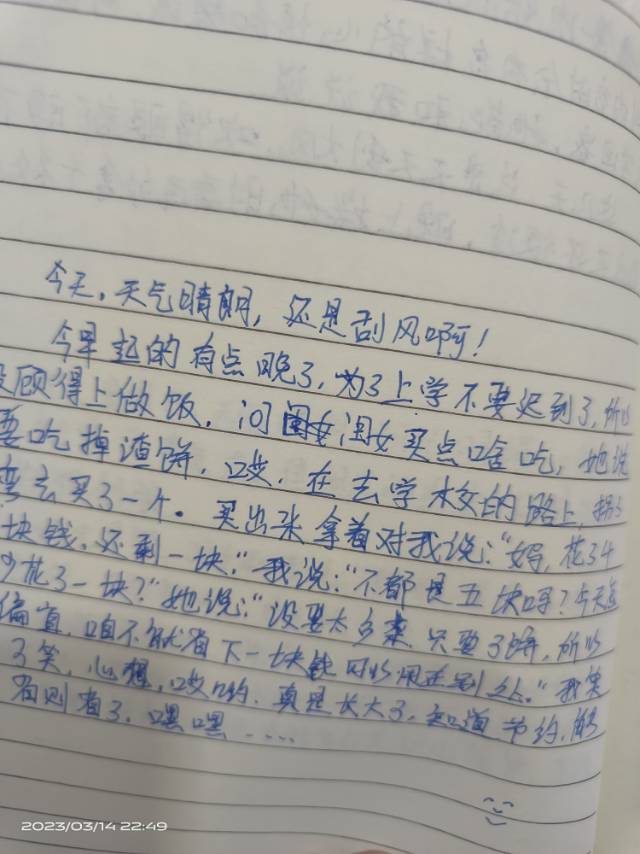 今天，天气晴朗，还是刮风啊！
今早起的有点晚了，为了上学不要迟到了，所以
没顾得上做饭，问闺女闺女买点啥吃，她说
要吃掉渣饼，哎，在去学校的路上，拐
弯去买了一个。买出来拿着对我说："妈，花了4
块钱，还剩一块."我说："不都是五块吗？今天怎
少花了一块？"她说："没要太多菜，只要了饼，所以
偏宜，咱不就省下一块钱可以用在别处."我笑
了笑，心想，哎哟，真是长大了，知道节约，能
省则省了，嘿嘿.....
2023/03/14 22:49